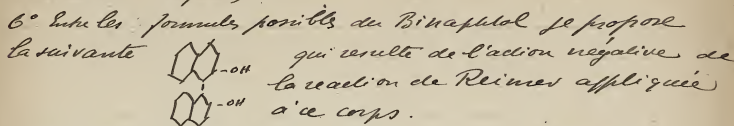 6° Entre les formules possibles du Binaphtol je propose
la suivante
-OH
qui resulte de l'action négative de
la reaction de Reimer appliquée
-OH
à ce corps.